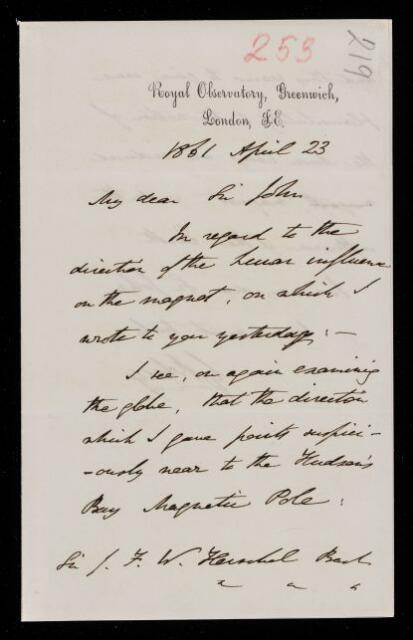 253
219
Royal Observatory, Greenwich,
London, S.E.
1861 April 23
My dear Sir John
In regard to the
direction of the Lunar influence
on the magnet, on which I
wrote to you yesterday: —
I see, on again examining
the globe, that the direction
which I gave points suspici-
-ously near to the Hudson's
Bay Magnetic Pole:
Sir J. F. W. Herschel Bart